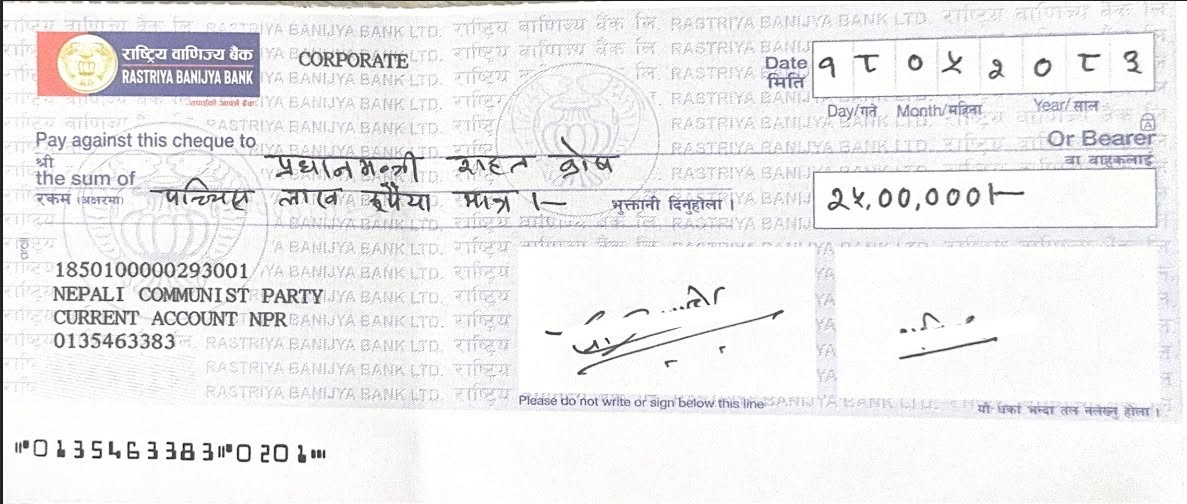 राष्ट्रिय वाणिज्य बैंक
RASTRIYA BANIJYA BANK
CORPORATE
Date
मिति
१८ ०५ २०८३
Day/गते Month/महिना Year/साल
Pay against this cheque to
श्री
प्रधानमन्त्री राहत कोष
Or Bearer
वा वाहकलाई
the sum of
रकम (अक्षरमा)
पच्चिस लाख रुपैया मात्र ।—
भुक्तानी दिनुहोला ।
२५,००,०००।—
1850100000293001
NEPALI COMMUNIST PARTY
CURRENT ACCOUNT NPR
0135463383
Please do not write or sign below this line
यो धर्का भन्दा तल नलेख्नु होला ।
⑈0135463383⑈0201⑈